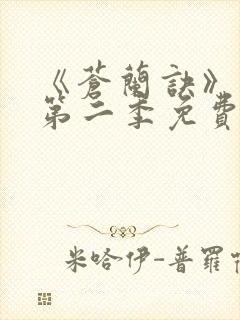 《蒼蘭訣》
第二季免費
米哈伊-普羅